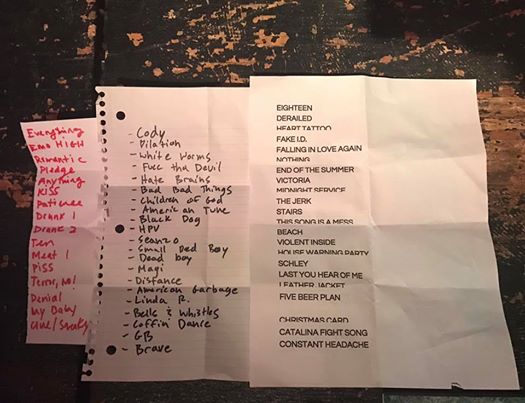 Everything
Emo HIGH
Romantic
Pledge
Anything
Kiss
Patience
Drunk 1
Drunk 2
Ten
Meet 1
Piss
Terror, No!
Denial
My Baby
- Cody
- Dilation
- White Worms
- Fucc tha Devil
- Hate Brains
- Bad Bad Things
- Children of God
- American Tune
- Black Dog
- HPV
- Seanzo
- Small Red Boy
- Dead boy
- Magi
- Distance
- American Garbage
- Linda R.
- Bells & Whistles
- Coffin Dance
- GB
- Brave
EIGHTEEN
DERAILED
HEART TATTOO
FAKE I.D.
FALLING IN LOVE AGAIN
NOTHING
END OF THE SUMMER
VICTORIA
MIDNIGHT SERVICE
THE JERK
STAIRS
THIS SONG IS A MESS
BEACH
VIOLENT INSIDE
HOUSE WARMING PARTY
SCHLEY
LAST YOU HEAR OF ME
LEATHER JACKET
FIVE BEER PLAN
CHRISTMAS CARD
CATALINA FIGHT SONG
CONSTANT HEADACHE